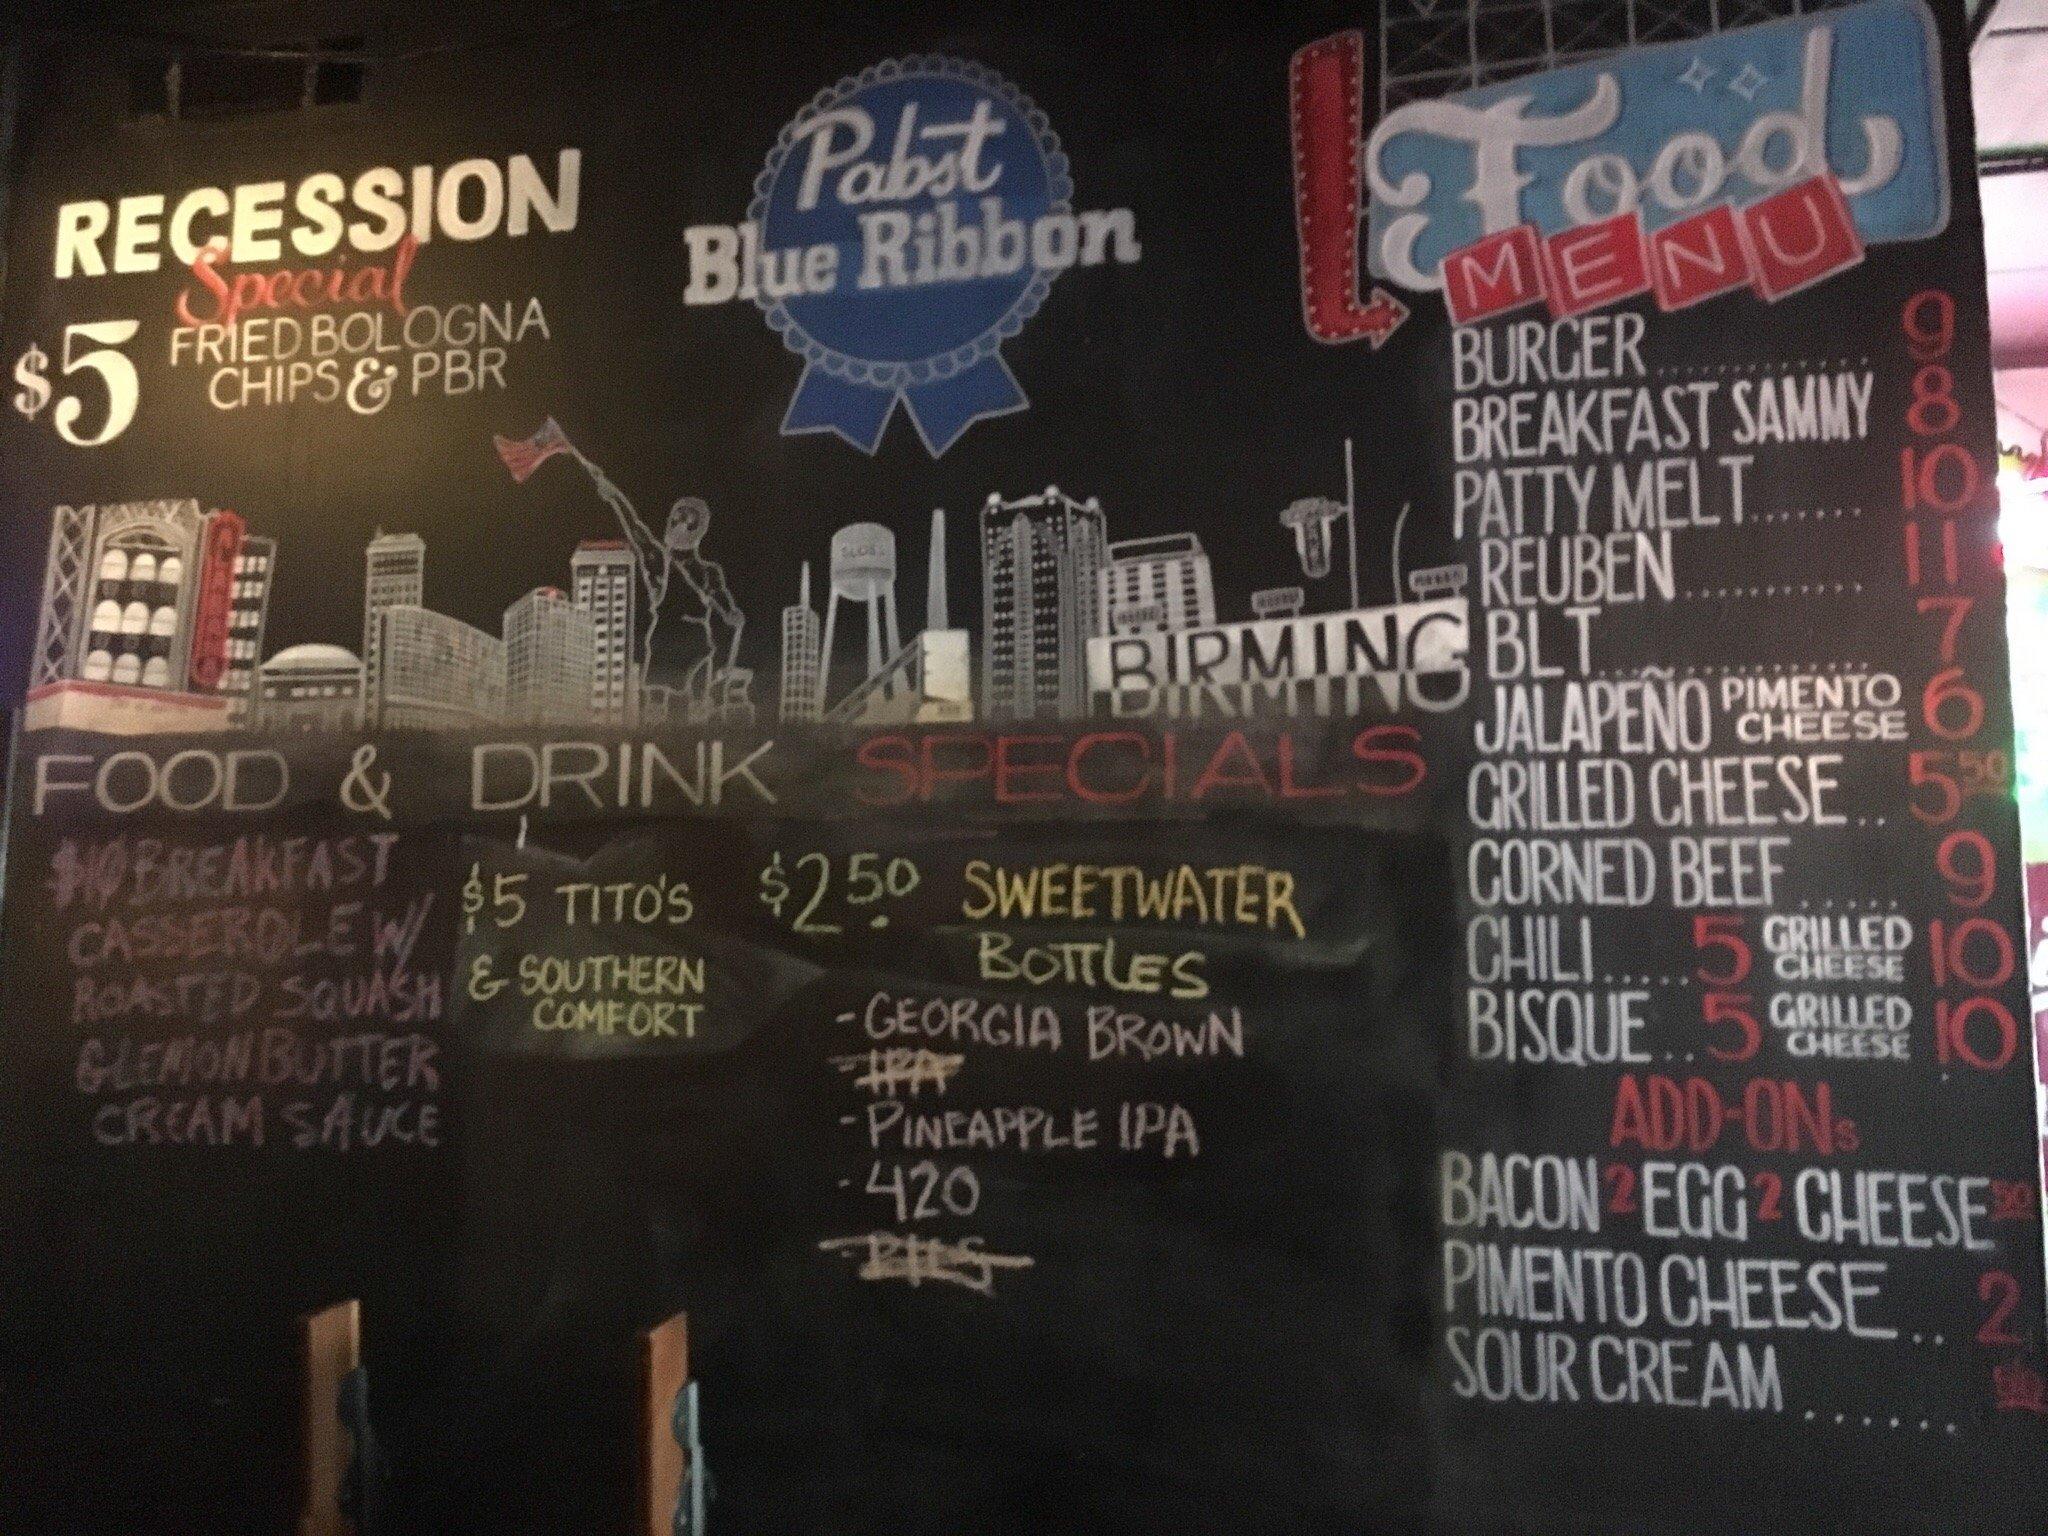 RECESSION
Special
$5 FRIED BOLOGNA
CHIPS & PBR
Pabst
Blue Ribbon
Food
MENU
BURGER............. 9
BREAKFAST SAMMY 8
PATTY MELT....... 10
REUBEN........... 11
BLT................ 7
JALAPEÑO PIMENTO CHEESE 6
GRILLED CHEESE.. 5.50
CORNED BEEF..... 9
CHILI.....5 GRILLED CHEESE 10
BISQUE..5 GRILLED CHEESE 10
ADD-ONs
BACON 2 EGG 2 CHEESE 50
PIMENTO CHEESE.. 2
SOUR CREAM ......
SLOSS
BIRMING
FOOD & DRINK SPECIALS
$10 BREAKFAST
CASSEROLE W/
ROASTED SQUASH
& LEMON BUTTER
CREAM SAUCE
$5 TITO'S
& SOUTHERN
COMFORT
$2.50 SWEETWATER
BOTTLES
- GEORGIA BROWN
- IPA
- PINEAPPLE IPA
- 420